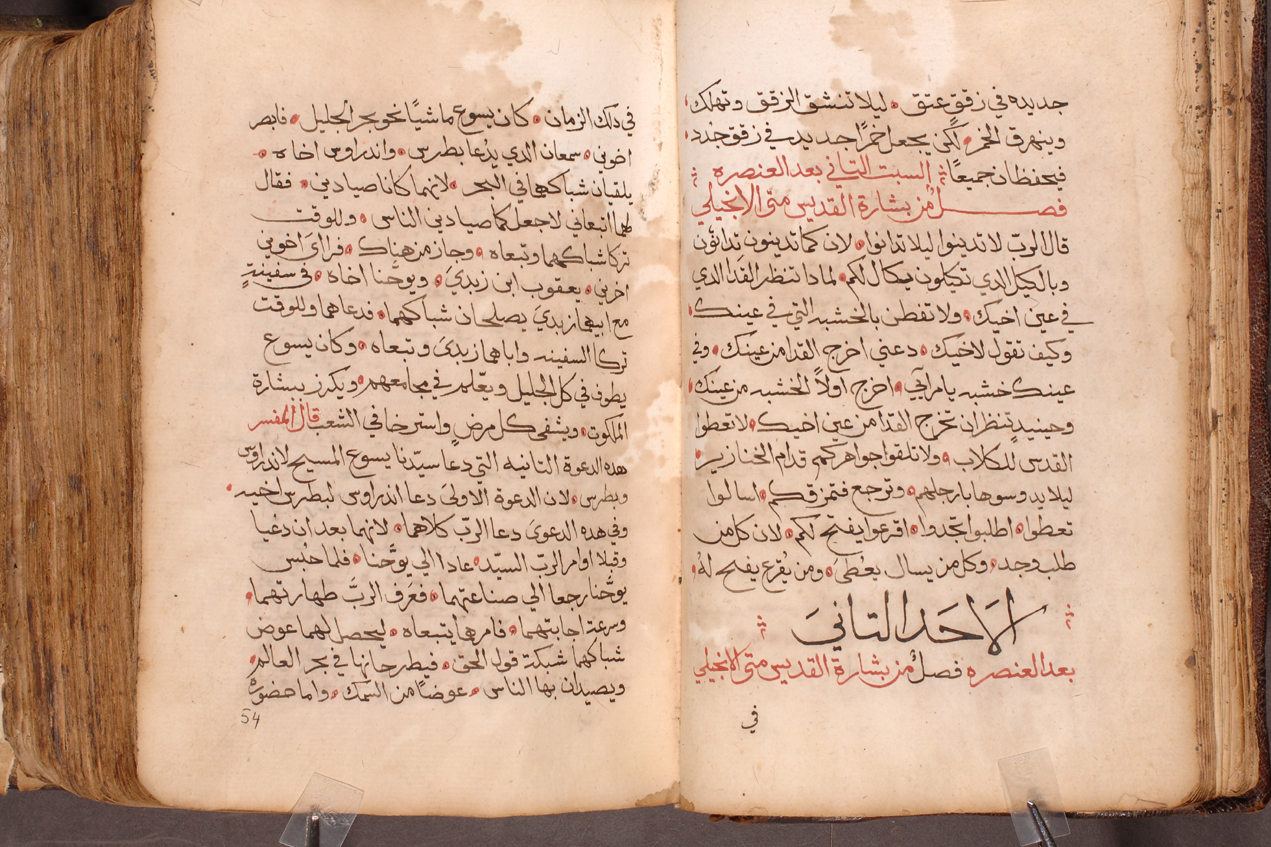 جديده في زقوق عتق • ليلا تنشق الزقق وتهلك •
وينهرق الخمر • لكن يجعل خمرًا جديد في زقوق جدد •
فيحفظان جميعًا السبت التاني بعد العنصره
فصل من بشارة القديس متى الانجيلي
قال الربّ لا تدينوا ليلا تدانوا • لان كما تدينون تدانون
وبالكيل الدي تكيلون يكال لكم • لمادا تنظر القدا الدي
في عين اخيك • ولا تفطن بالخشبه التي في عينك •
وكيف تقول لاخيك • دعني اخرج القدا من عينك • وفي
عينك خشبه يا مرآني • اخرج اولاً الخشبه من عينك •
وحينيدٍ تنظر ان تخرج القدا من عين اخيك • لا تعطوا
القدس للكلاب • ولا تلقوا جواهركم قدام الخنازير •
ليلا يدوسوها بارجلهم • وترجع فتمزقكم • اسالوا
تعطوا • اطلبوا تجدوا • اقرعوا يفتح لكم • لان كل من
طلب وجد • وكل من يسال يعُطىَ • ومن يُقرع يفتح لهُ •
الاَحَد التانيَ
بعد العنصره فصلٌ من بشارة القديس متى الانجيلي
في
في دلك الزمان • كان يسوع ماشيًا نحو بحر الجليل • فابصر
اخوين • سمعان الدي يدُعا بطرس • واندراوس اخاه •
يلقيان شباكهما في البحر • لانهما كانا صيادين • فقال
لهما اتبعاني لاجعلكما صيادين الناس • وللوقت
تركا شباكهما وتبعاه • وجاز من هناك • فراىَ اخوين
اخرين • يعقوب ابن زبديَ • ويوحَّنا اخاه • في سفينةٍ
مع ابيهما زبديَ يصلحان شباكهما • فدعاهما وللوقت
تركا السفينه واباهما زبديَ وتبعاه • وكان يسوع
يطوف في كل الجليل ويعّلم في مجامعهم • ويكرز ببشارة
الملكوت • ويشفي كل مرضٍ واسترخا في الشعب قال المفسر
هده الدعوة التانيه التي دعا سيّدنا يسوع المسيح لاندراوس
وبطرس • لان الدعوة الاولىَ دعا اندراوس لبطرس اخيه •
وفي هده الدعوىَ دعا الربّ كلاهما • لانهما بعد ان دعُيا
وقبلا اوامر الربّ السيّد • عادا الي يوحَّنا • فلما حبُس
يوحَّنا رجعا الي صناعتهما • فعَرَف الربّ طهارتهما •
وسرعة اجابتهما • فامرهما يتبعاه • ليحصل لهما عوض
شباكهما شبكة قوله الحق • فيطرحانها في بحر العالم •
ويصيدان بها الناس • عوضًا من السمك • واما حضوره
54